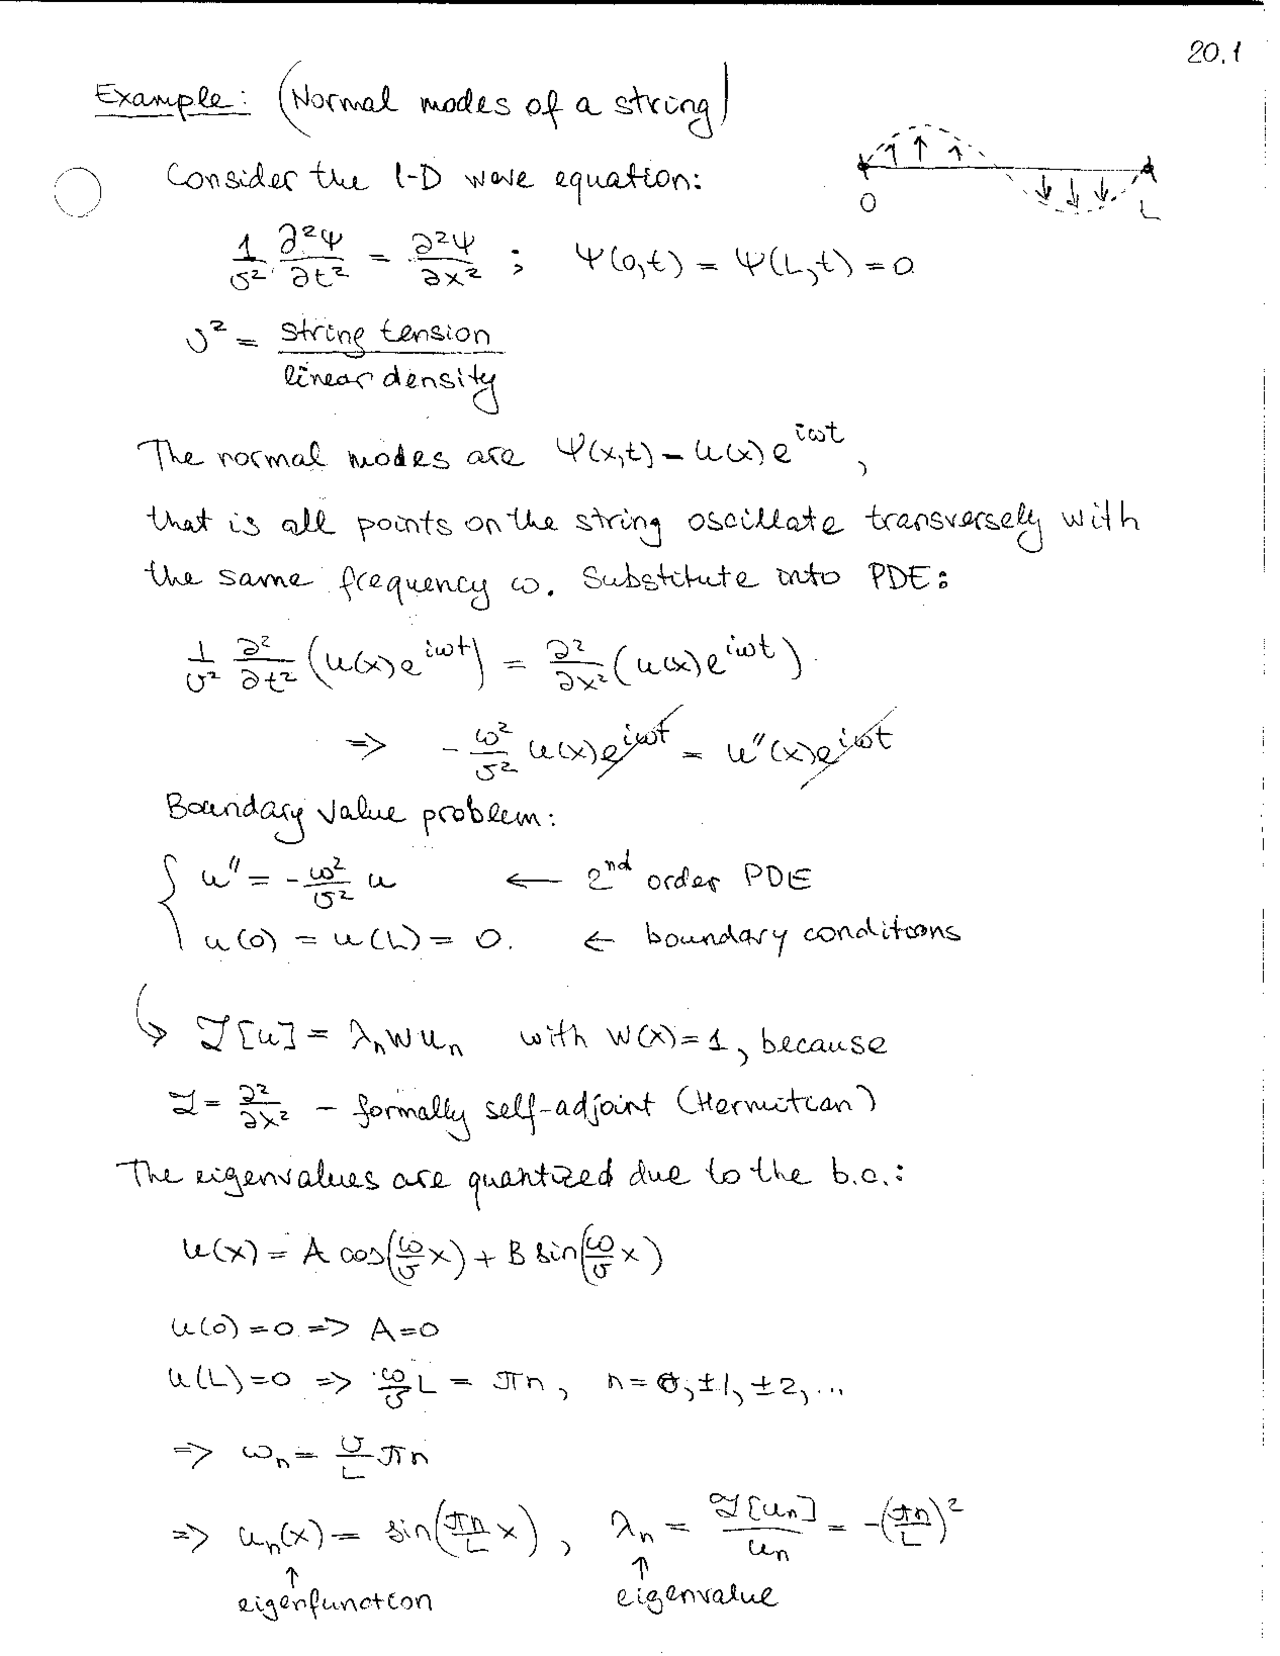 20.1
Example: (Normal modes of a string)
Consider the 1-D wave equation:
0 L
1/υ² ∂²Ψ/∂t² = ∂²Ψ/∂x² ; Ψ(0,t) = Ψ(L,t) = 0
υ² = string tension / linear density
The normal modes are Ψ(x,t) = u(x) e^{iωt},
that is all points on the string oscillate transversely with
the same frequency ω. Substitute into PDE:
1/υ² ∂²/∂t² (u(x)e^{iωt}) = ∂²/∂x² (u(x)e^{iωt}).
=> -ω²/υ² u(x)e^{iωt} = u''(x)e^{iωt}
Boundary value problem:
{ u'' = -ω²/υ² u ← 2nd order PDE
u(0) = u(L) = 0. ← boundary conditions
↳ ℒ[u] = λₙwuₙ with w(x)=1, because
ℒ = ∂²/∂x² – formally self-adjoint (Hermitian)
The eigenvalues are quantized due to the b.c.:
u(x) = A cos(ω/υ x) + B sin(ω/υ x)
u(0)=0 => A=0
u(L)=0 => ω/υ L = πn, n = 0, ±1, ±2, ...
=> ωₙ = υ/L πn
=> uₙ(x) = sin(πn/L x), λₙ = ℒ[uₙ]/uₙ = -(πn/L)²
↑ ↑
eigenfunction eigenvalue